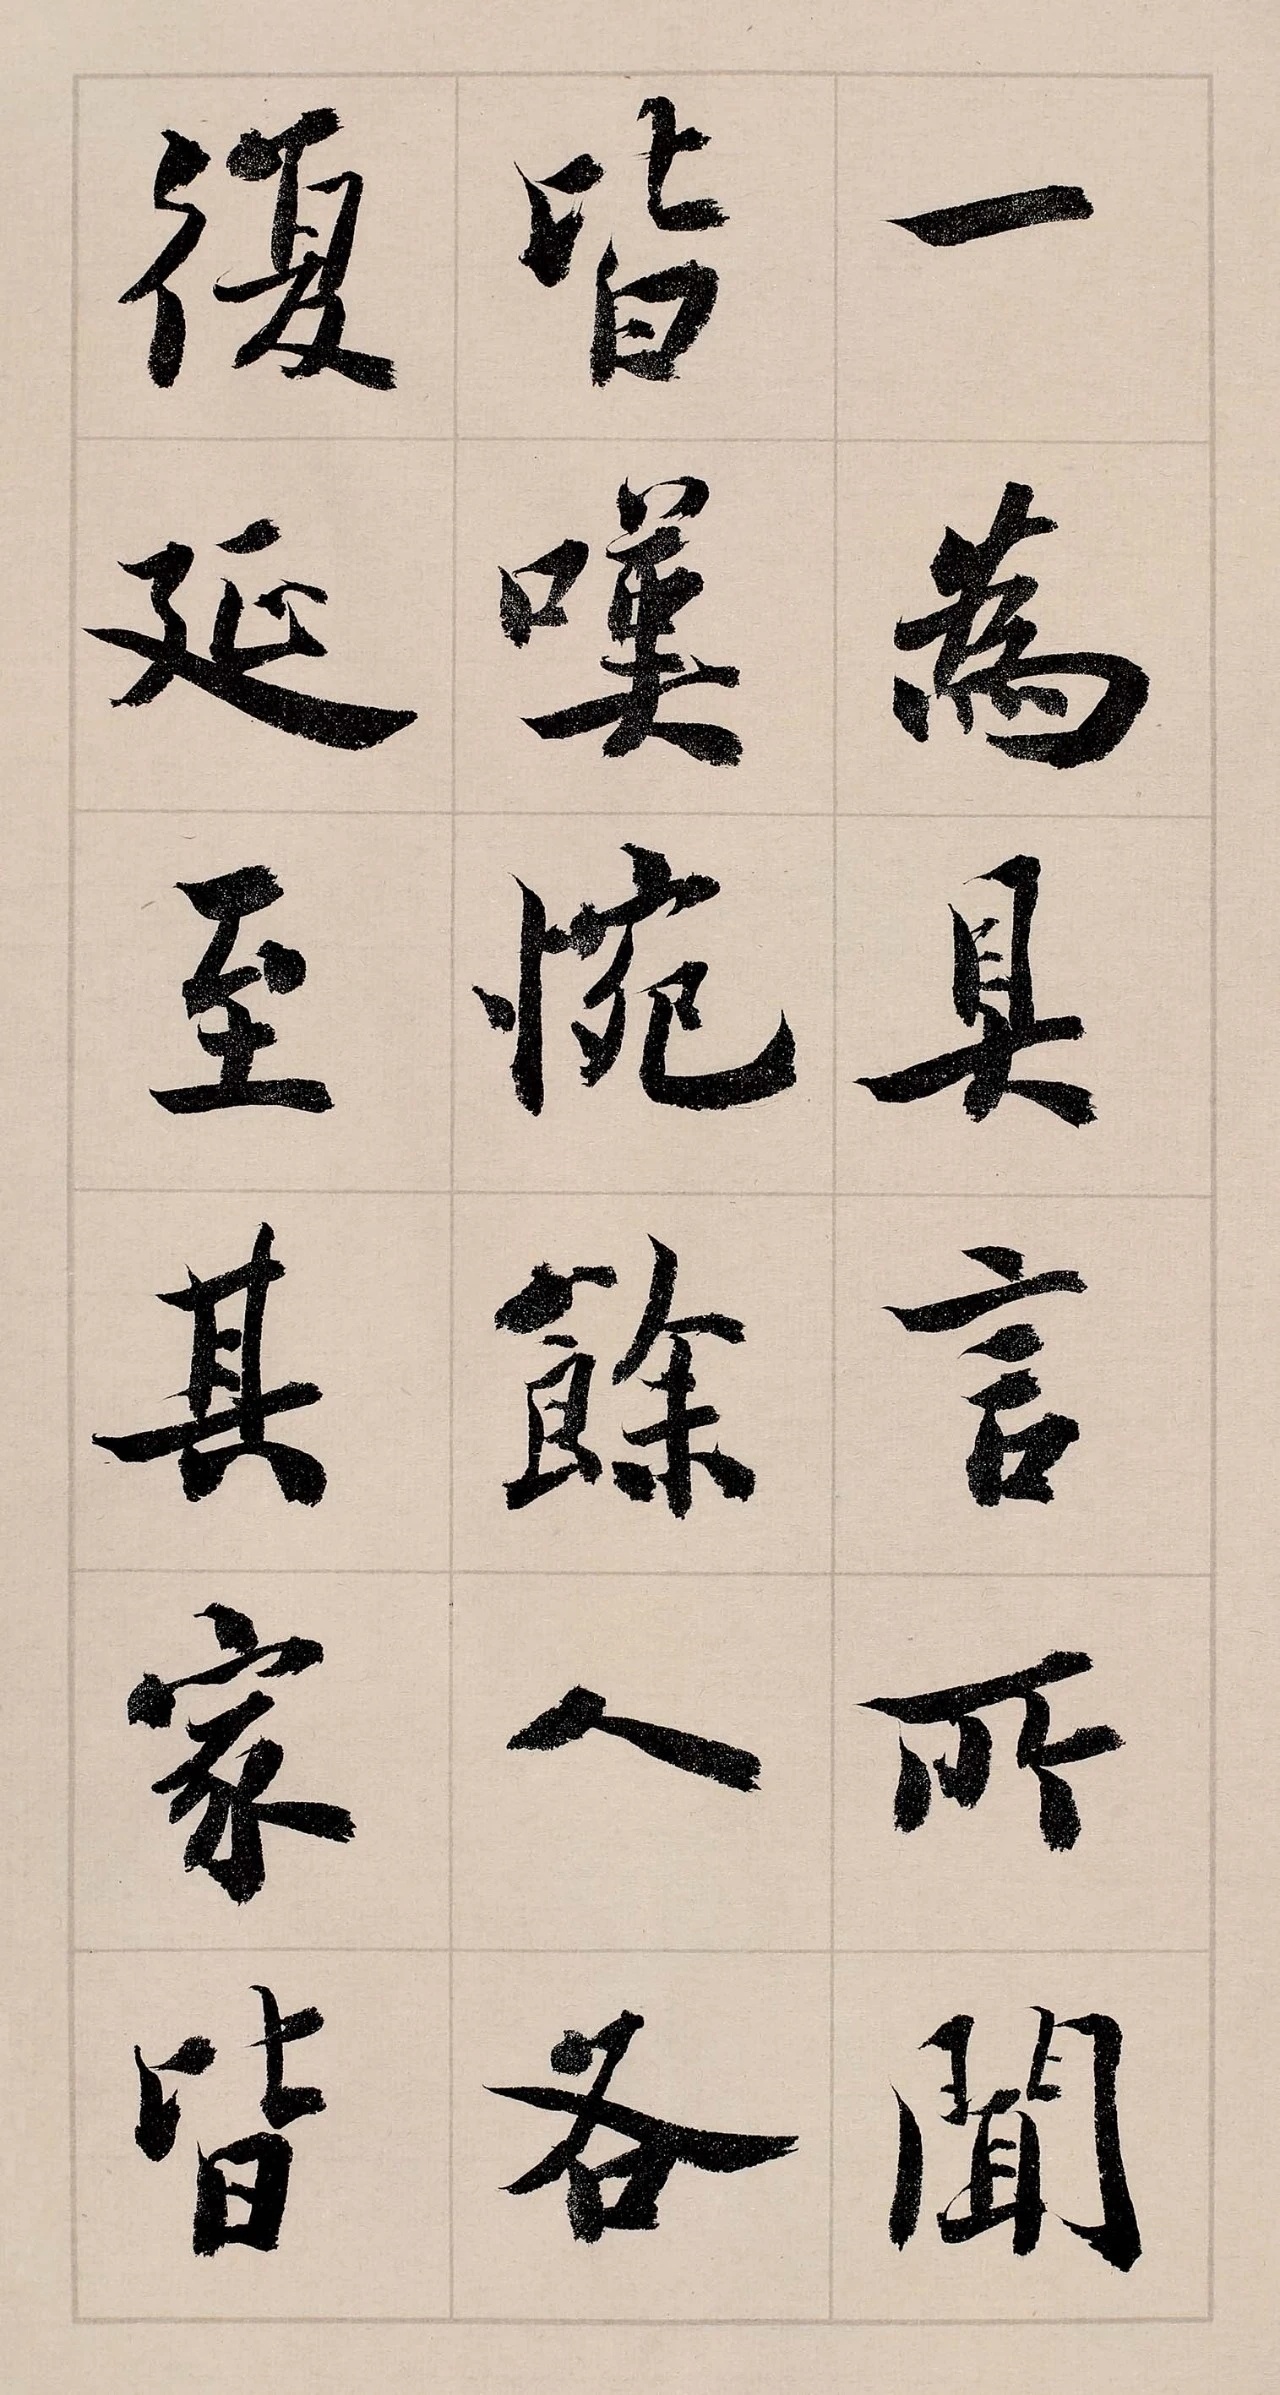 一為具言所聞
皆嘆惋餘人各
復延至其家皆